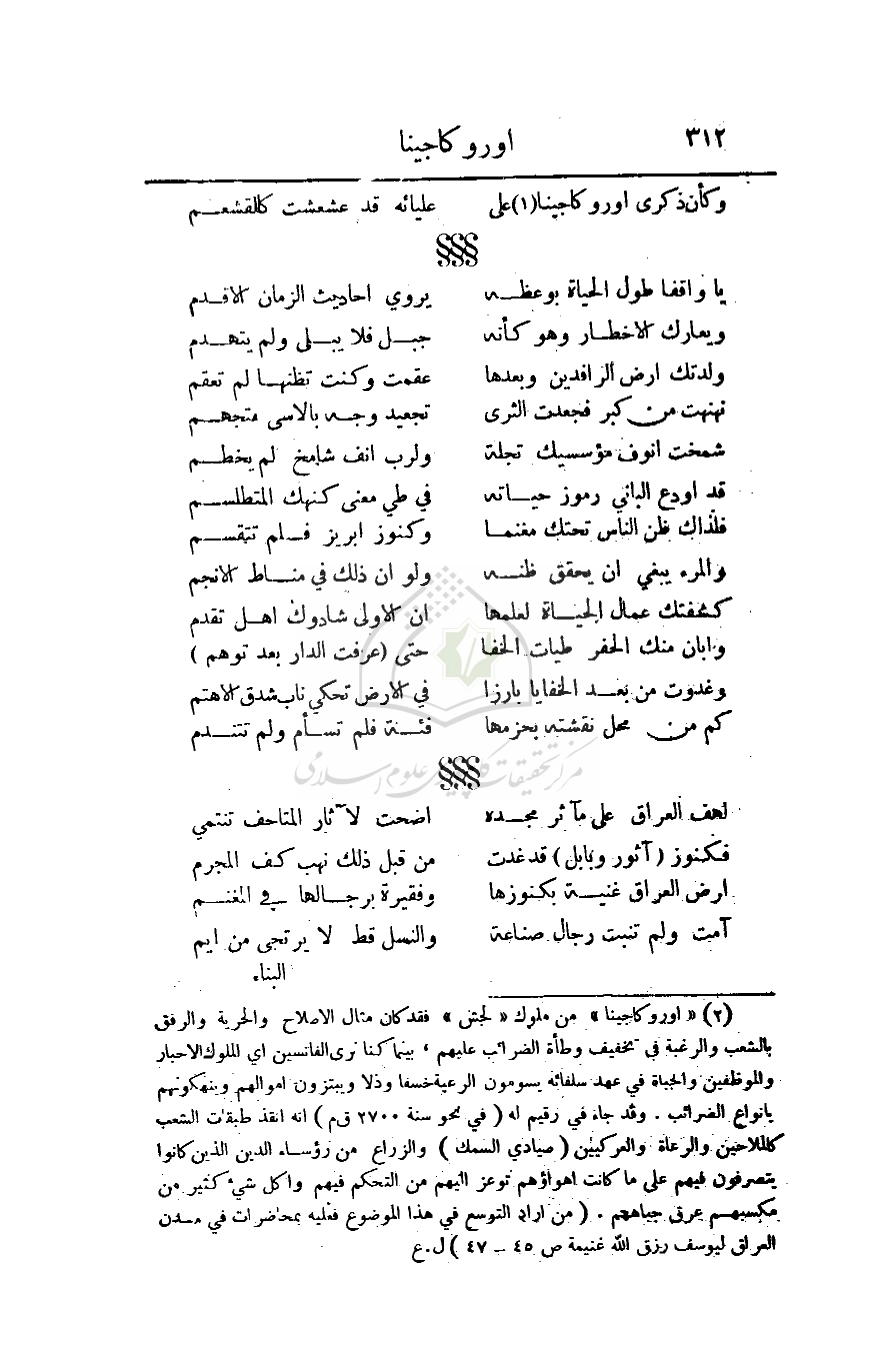 ٣١٢ اوروكاجينا
وكأن ذكرى اوروكاجينا (١) على عليائه قد عشعشت كالقشعـــم
§§§
يا واقفا طول الحياة بوعظـــه يروي احاديث الزمان الاقـدم
ويعارك الاخطـار وهو كأنه جبــل فلا يبــلى ولم يتهــدم
ولدتك ارض الرافدين وبعدها عقمت وكنت تظنهـا لم تعقم
نهنهت من كبر فجعدت الثرى تجعيد وجــه بالاسى متجهــم
شمخت انوف مؤسسيك تجلة ولرب انف شامخ لم يخطــم
قد اودع الباني رموز حيـاته في طي معنى كنهك المتطلســم
فلذاك ظن الناس تحتك مغنمـا وكنوز ابريز فــلم تتقســم
والمرء يبغي ان يحقق ظنــه ولو ان ذلك في منــاط الانجم
كشفتك عمال الحيــاة لعلمها ان الاولى شادوك اهــل تقدم
وابان منك الحفر طيات الخفا حتى (عرفت الدار بعد توهم )
وغدوت من بعــد الخفايا بارزا في الارض تحكي ناب شدق الاهتم
كم من محل نقشته بحزمها فئــة فلم تسـأم ولم تتنــدم
§§§
لهف العراق على مآثر مجــده اضحت لآثار المتاحف تنتمي
فكنوز (آثور وبابل) قد غدت من قبل ذلك نهب كف المجرم
ارض العراق غنيــة بكنوزها وفقيرة برجــالها في المغنــم
آمت ولم تنبت رجال صناعة والنسل قط لا يرتجى من ايم
البناء
(٢) « اوروكاجينا » من ملوك « لجش » فقد كان مثال الاصلاح والحرية والرفق
بالشعب والرغبة في تخفيف وطأة الضرائب عليهم ، بينما كنا نرى الفانسين اي الملوك الاحبار
والموظفين والجباة في عهد سلفائه يسومون الرعية خسفا وذلا ويبتزون اموالهم وينهكونهم
بانواع الضرائب . وقد جاء في رقيم له ( في نحو سنة ٢٧٠٠ ق م ) انه انقذ طبقات الشعب
كالملاحين والرعاة والعركيين ( صيادي السمك ) والزراع من رؤساء الدين الذين كانوا
يتصرفون فيهم على ما كانت اهواؤهم توعز اليهم من التحكم فيهم واكل شيء كثير من
مكسبهــم عرق جباههم . ( من اراد التوسع في هذا الموضوع فعليه بمحاضرات في مــدن
العراق ليوسف رزق الله غنيمة ص ٤٥ – ٤٧ ) ل.ع
مركز تحقيقات كامپيوترى علوم اسلامى